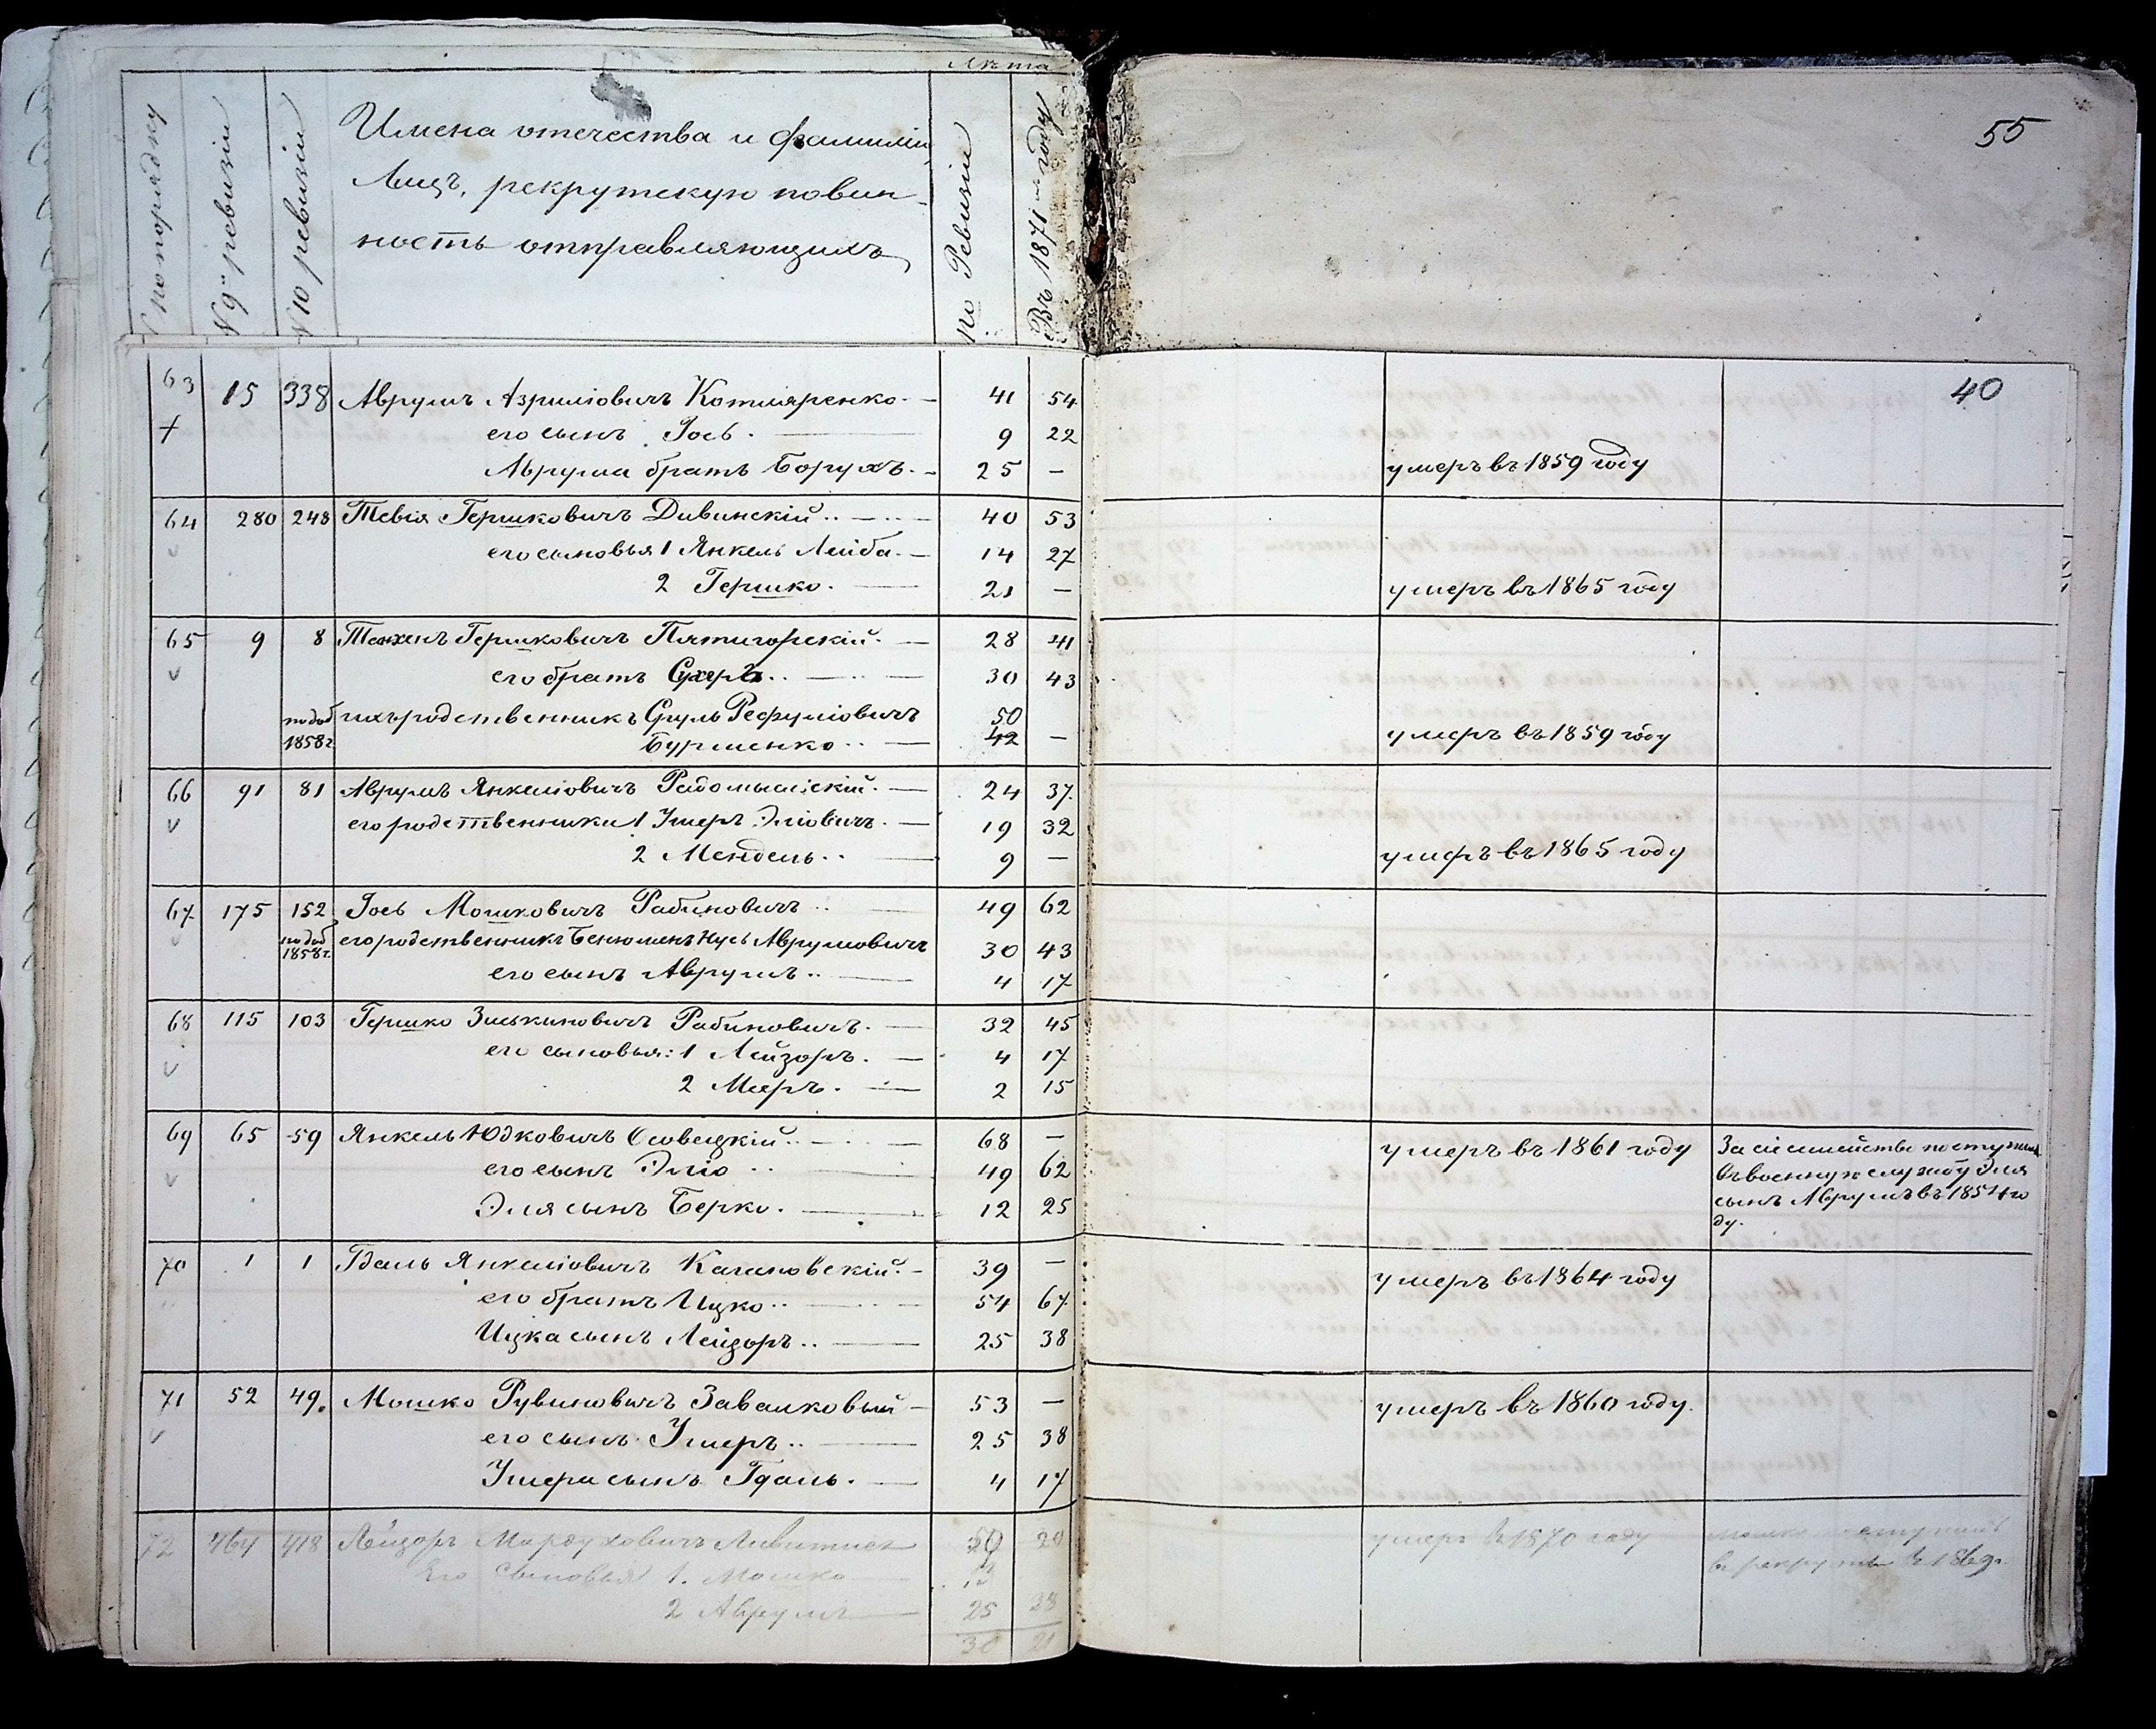 Лѣта
№ по порядку
№ 9й ревизіи
№ 10 ревизіи
Имена отечества и фамиліи
Лицъ, рекрутскую повин-
ность отправляющихъ
по Ревизіи
Въ 1871мъ году
55
40
63 15 338 Аврумъ Азриліовичъ Котляренко. — 41 54
+ его сынъ Іось. — 9 22
Аврума братъ Борухъ. — 25 — умеръ въ 1859 году
64 280 248 Тевія Гершковичъ Дивинскій.. — 40 53
v его сыновья 1 Янкель Лейба. — 14 27
2 Гершко. — 21 — умеръ въ 1865 году
65 9 8 Танхенъ Гершковичъ Пятигорскій. — 28 41
v его братъ Сухеръ.. — 30 43
по доб ихъ родственникъ Сруль Рефуліовичъ 50
1858г. Бурменко.. — 42 — умеръ въ 1859 году
66 91 81 Аврумъ Янкеліовичъ Радомысльскій. — 24 37.
v его родственники 1 Умеръ Эліовичъ. — 19 32
2 Мендель.. — 9 — умеръ въ 1865 году
67. 175 152 Іось Мошковичъ Рабиновичъ.. — 49 62
v по доб 1858г. его родственникъ Бенюменъ Нусь Аврумовичъ 30 43
его сынъ Аврумъ.. — 4 17.
68 115 103 Гершко Зиськиновичъ Рабиновичъ. — 32 45
v его сыновья: 1 Лейзоръ. — 4 17.
2 Мееръ. — 2 15
69 65 59 Янкель Юдковичъ Осовецкій.. — 68 — умеръ въ 1861 году За сіе семейство поступилъ
v его сынъ Эліо.. — 49 62 въ военную службу Эля
Эля сынъ Берко. — 12 25 сынъ Аврумъ въ 1854 го
ду.
70 1 1 Гдаль Янкеліовичъ Кагановскій. — 39 — умеръ въ 1864 году
его братъ Ицко.. — 54 67.
Ицка сынъ Лейзоръ.. — 25 38
71 52 49. Мошко Рувиновичъ Завалковый — 53 — умеръ въ 1860 году.
v его сынъ Умеръ.. — 25 38
Умера сынъ Гдаль. — 4 17
72 464 418 Лейзоръ Мардуховичъ умеръ въ 1870 году Мошко поступилъ
Его сыновья 1. Мошко — въ рекруты въ
2 Аврумъ — 25 38
30 21